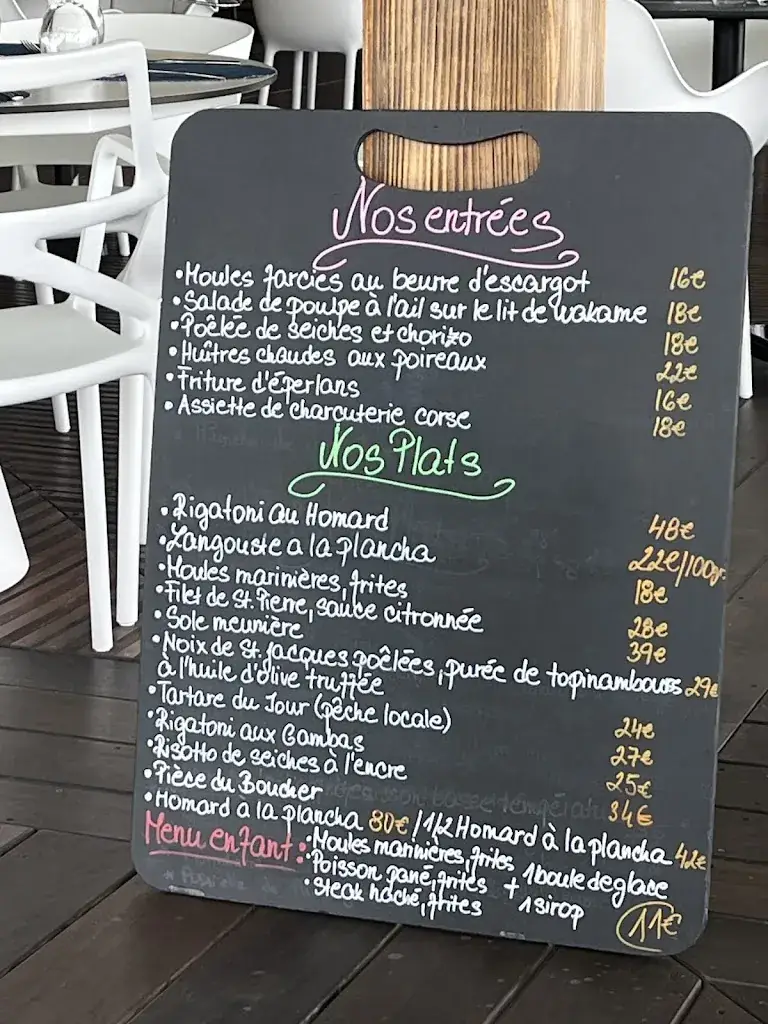 Nos entrées
•Moules farcies au beurre d'escargot 16€
•Salade de poulpe à l'ail sur le lit de wakame 18€
•Poêlée de seiches et chorizo 18€
•Huîtres chaudes aux poireaux 22€
•Friture d'éperlans 16€
•Assiette de charcuterie corse 18€
Nos Plats
•Rigatoni au Homard 48€
•Langouste a la plancha 22€/100gr
•Moules marinières, frites 18€
•Filet de St. Pierre, sauce citronnée 28€
•Sole meunière 39€
•Noix de St. Jacques poêlées, purée de topinambours 29€
à l'huile d'olive truffée
•Tartare du Jour (pêche locale) 24€
•Rigatoni aux Gambas 27€
•Risotto de seiches à l'encre 25€
•Pièce du Boucher 34€
•Homard à la plancha 80€ / 1/2 Homard à la plancha 42€
Menu enfant: •Moules marinières, frites 1 boule de glace
•Poisson pané, frites +
•Steak haché, frites 1 sirop 11€